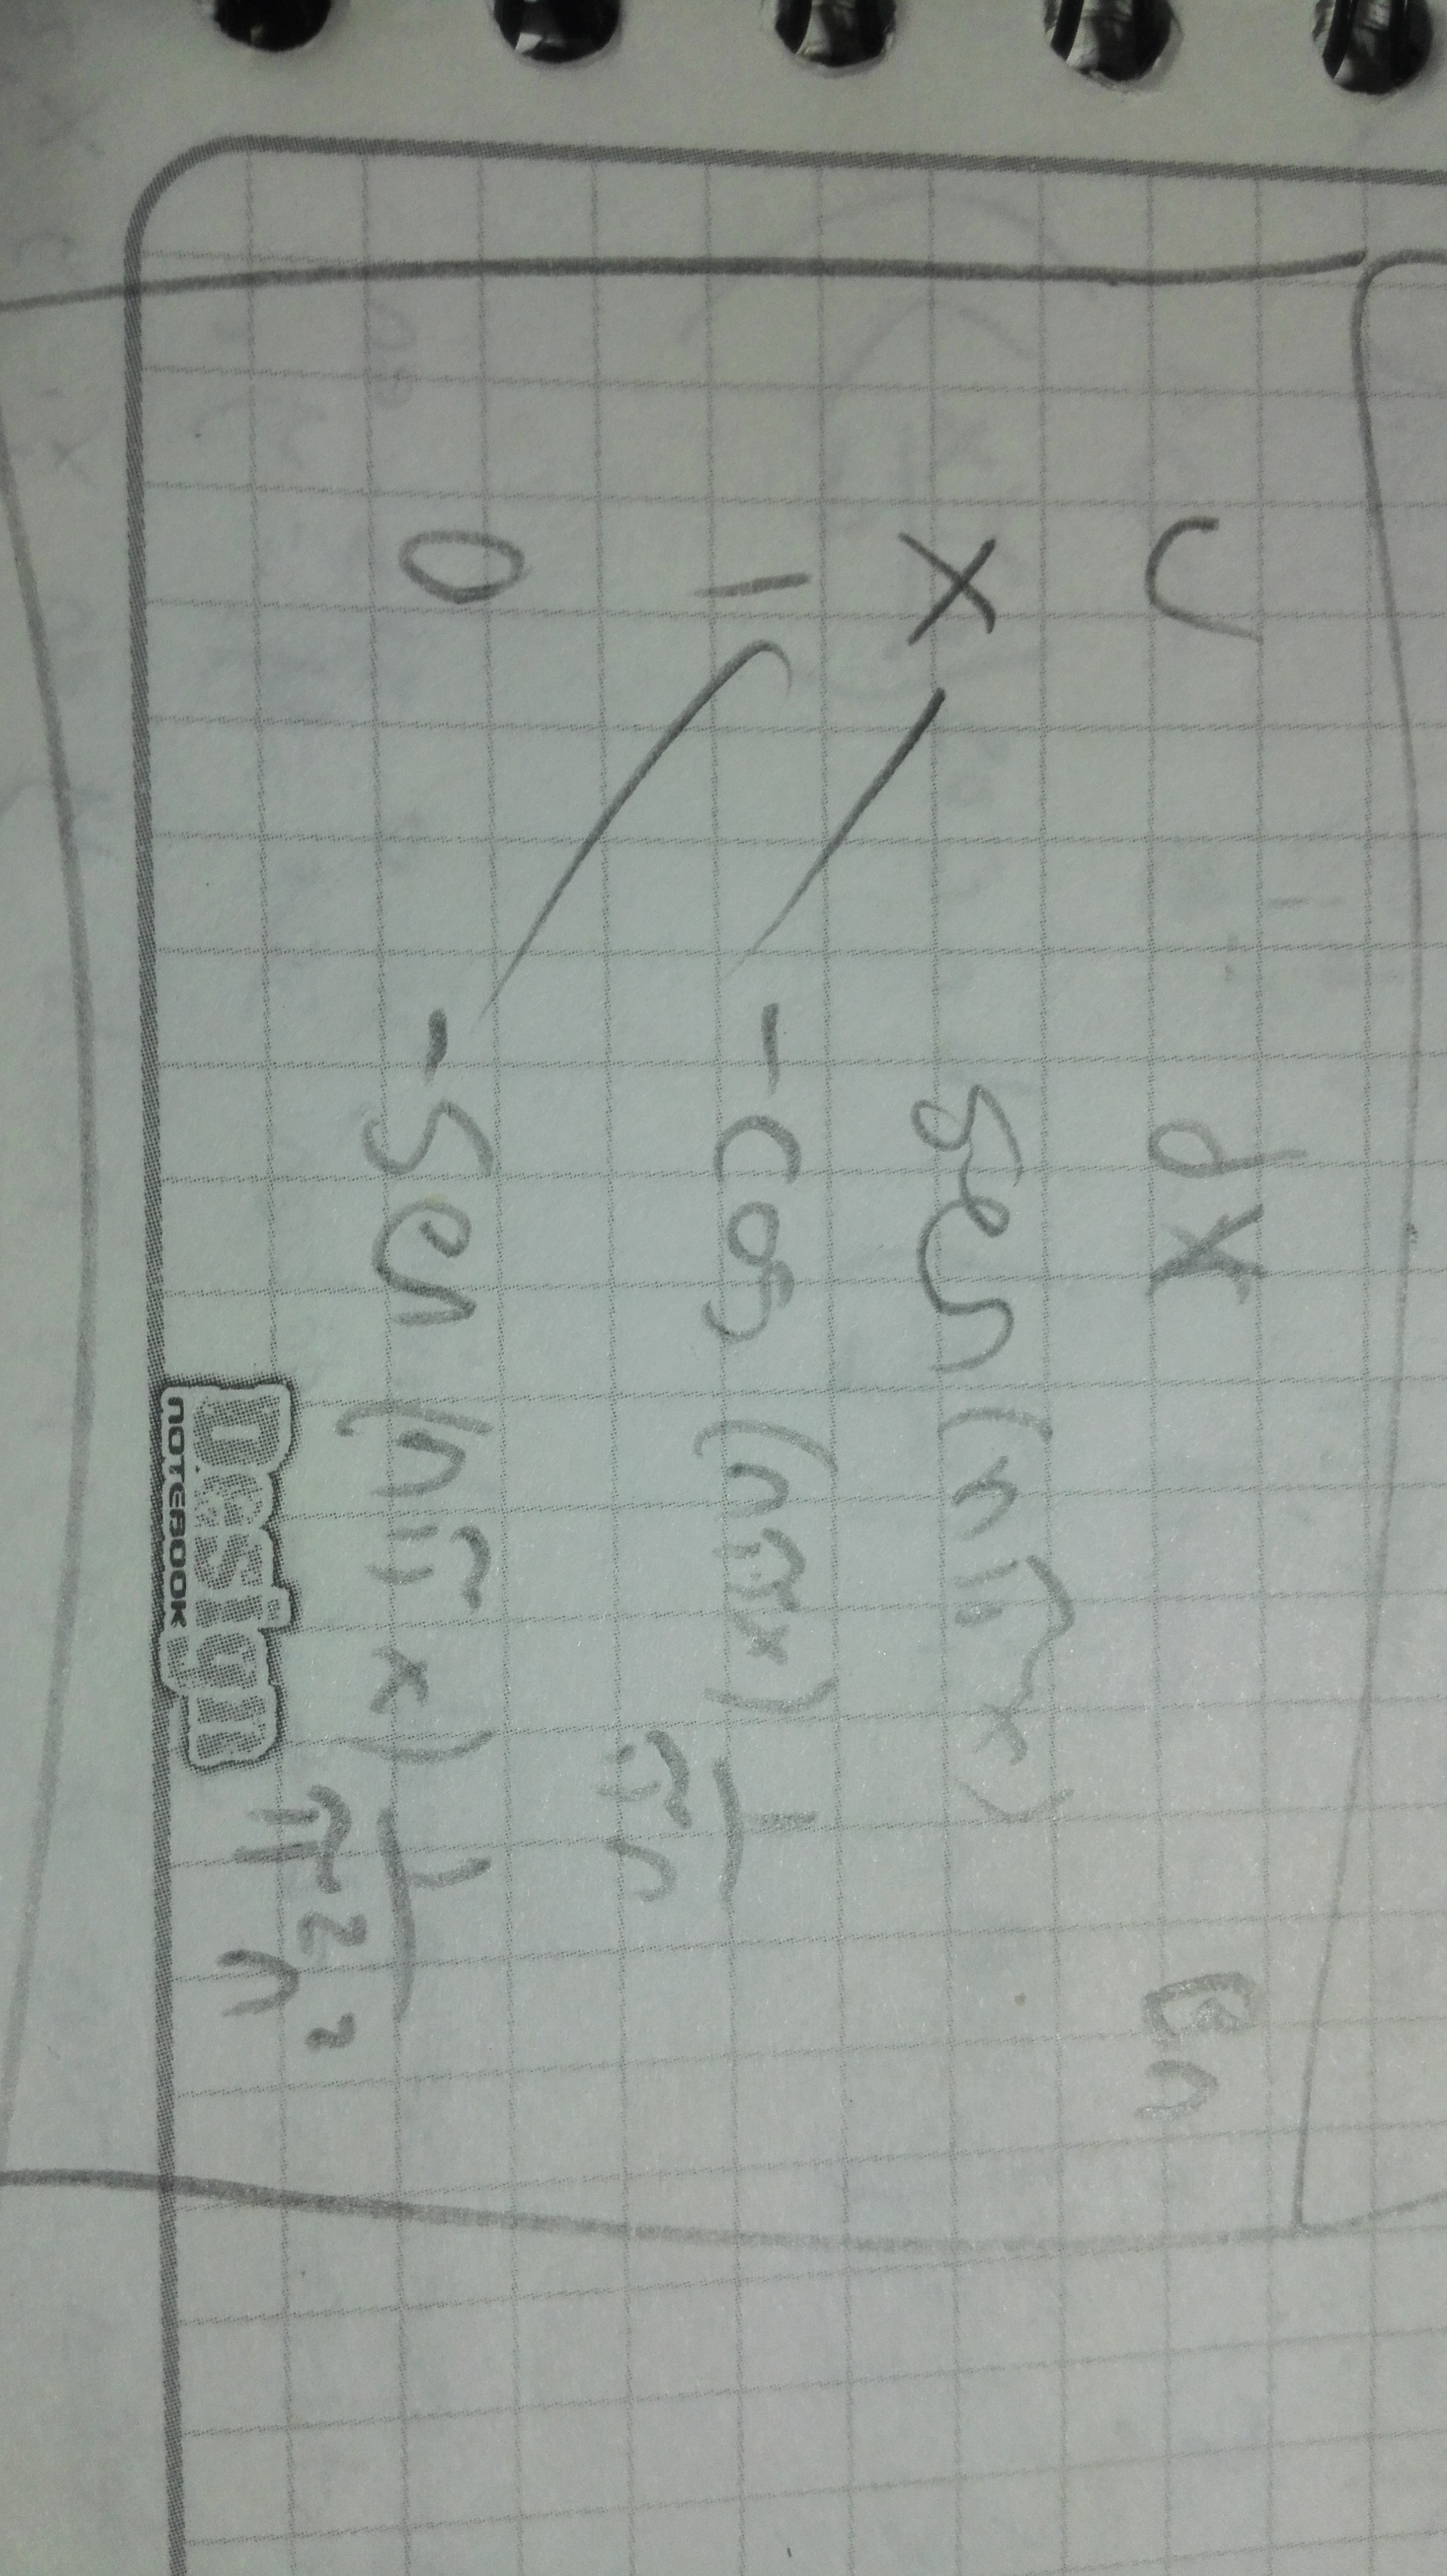 U dx
x sen (nπx)
1 -cos (nπx) 1/πn
0 -sen (nπx) 1/π²n²
Design
NOTEBOOK